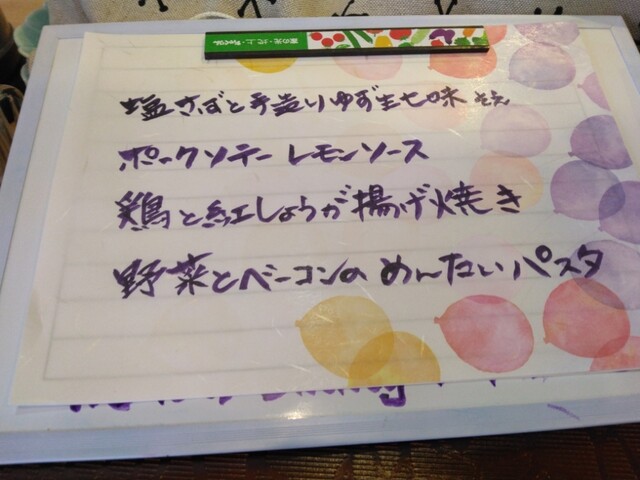 塩さばと手造りゆず生七味 そえ
ポークソテー レモンソース
鶏と紅しょうが揚げ焼き
野菜とベーコンの めんたいパスタ